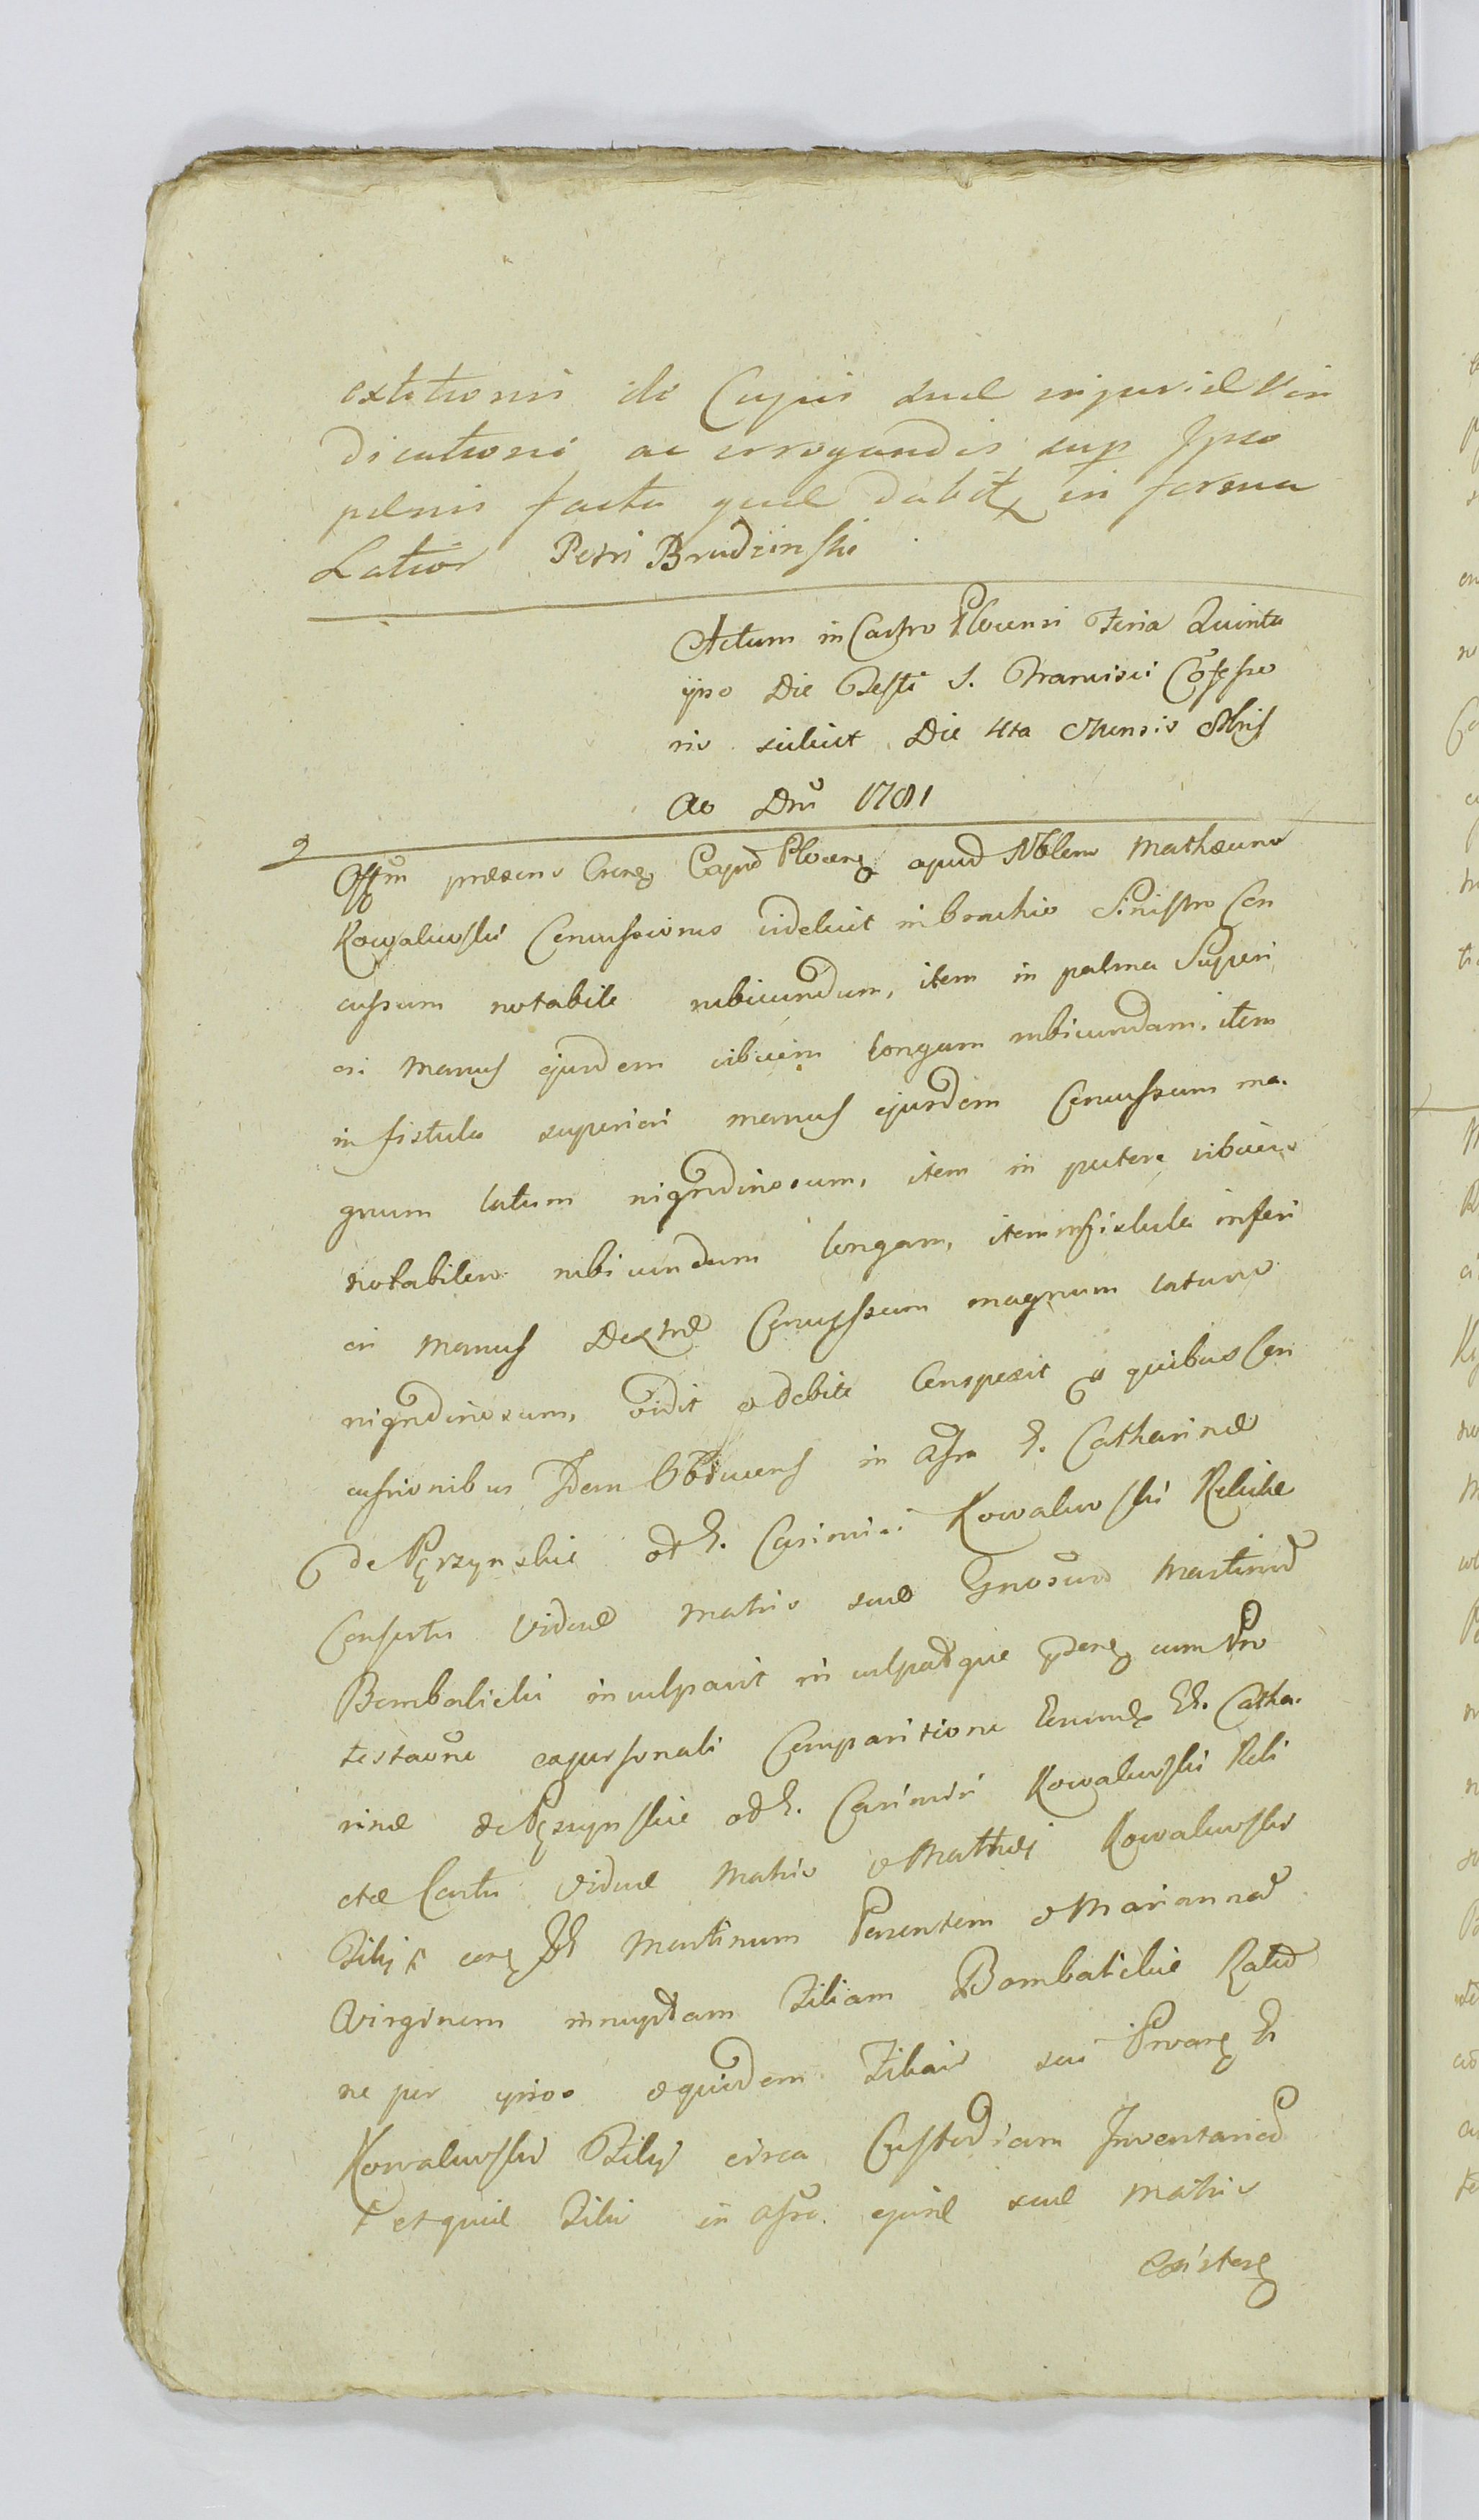 extitionis de Cujus suae injuriae Vin
dicationi ac irrogandis sup Ipso
paenis facta quae dabit in forma
Latior Petri Brudzinski
Actum in Castro Plocensi Feria Quinta
ipso Die Festi S. Francisci Cõfesso
ris scilicet Die 4ta Mensis Xbris
Ao Dni 1781
Offm praesens Capnd Plocen apud Nblem Mathaeum
Kowalewski Concussiones videlicet in brachio Sinistro Con
cussum notabile rubicundum, item in palma Superi
ori manus ejusdem vibicem longam rubicundam, item
in fistula superiori manus ejusdem Concussum ma.
gnum latum nigrudinosum, item in pectore vibicem
notabilem rubicundam longam, item in fistula inferi
ori manus Dextrae Concussum magnum latum
nigrudinosum, vidit et debite Conspexit quibus Con
cussionibus Idem Obducens in Assa G. Catharinae
de Pęrzynskie od G. Casimiri Kowalewski Relictae
Consortis viduae matris suae Gnosum Martinum
Bombalicki inculpavit inculpatque cum Pro
testaõne Compari­tione Catha.
rinae de Pęrzynskie Casimiri Kowalewski Reli
ctae Consrtis viduae Matris et Mathaei Kowalewski
Filij Martinum Parentem et Mariannam
Virginem innuptam Filiam Bombalickie Ratio
ne per ipsos equidem Filiam sui
Kowalewski Filij circa Custodiam Inventarior
et quae Filii in Assa ejusd suae Matris